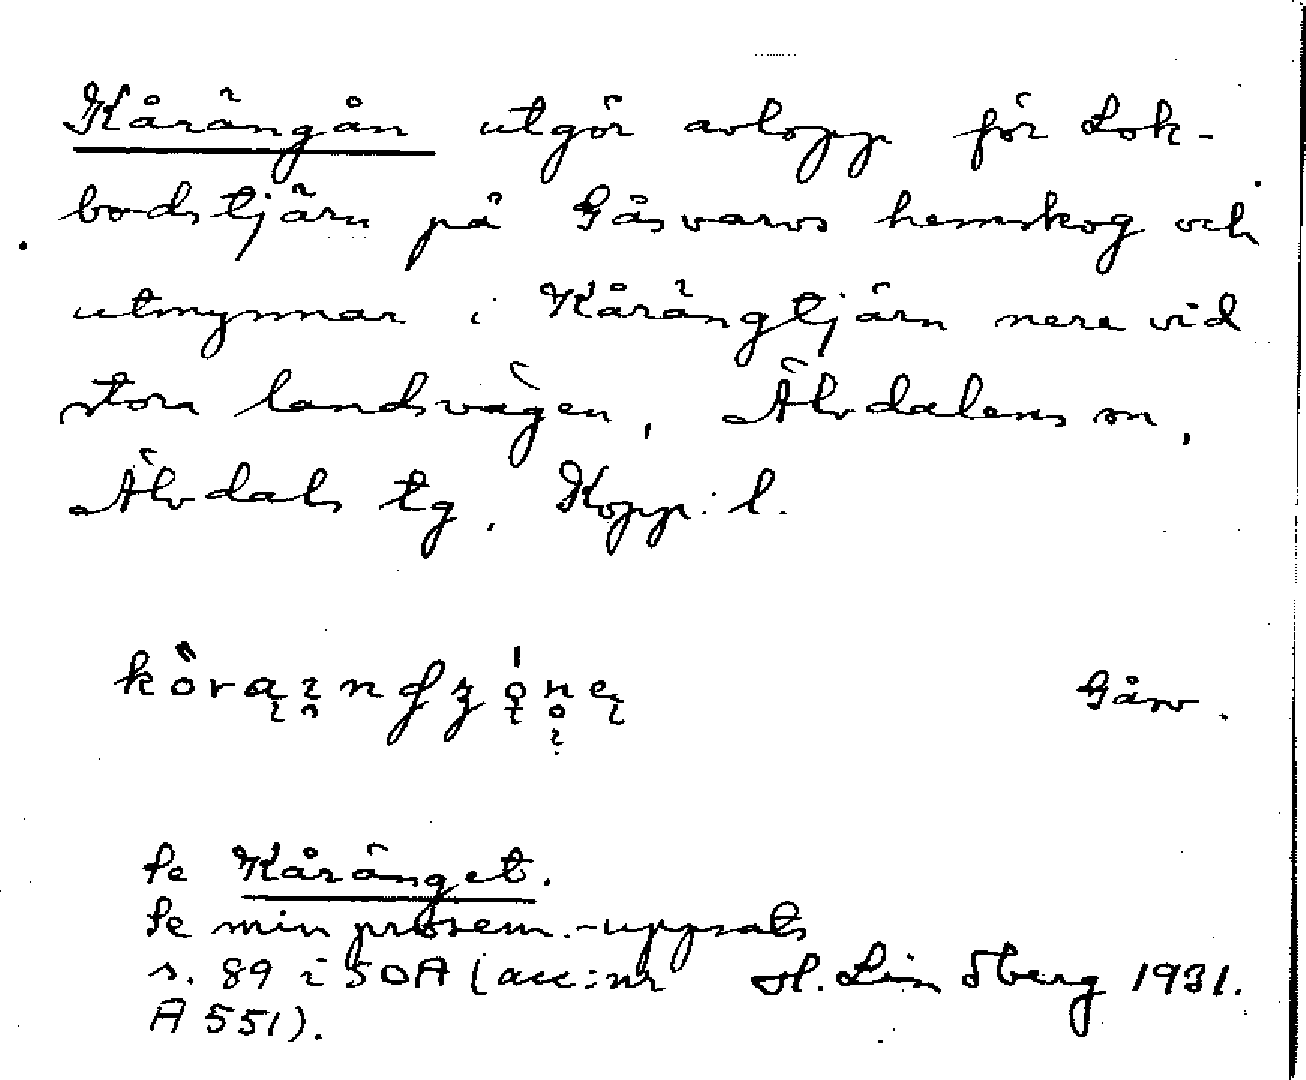 Kårängån utgör avlopp för Lok-
bodstjärn på Gåsvarvs hemskog och
utmynnar i Kårängtjärn nere vid
stora landsvägen, Älvdalens sn,
Älvdals tg, Kopp: l.
Gåsv.
Se Kåränget.
Se min prosem.-uppsats
s. 89 i SOA (acc:nr
A 551).
Lindberg 1931.